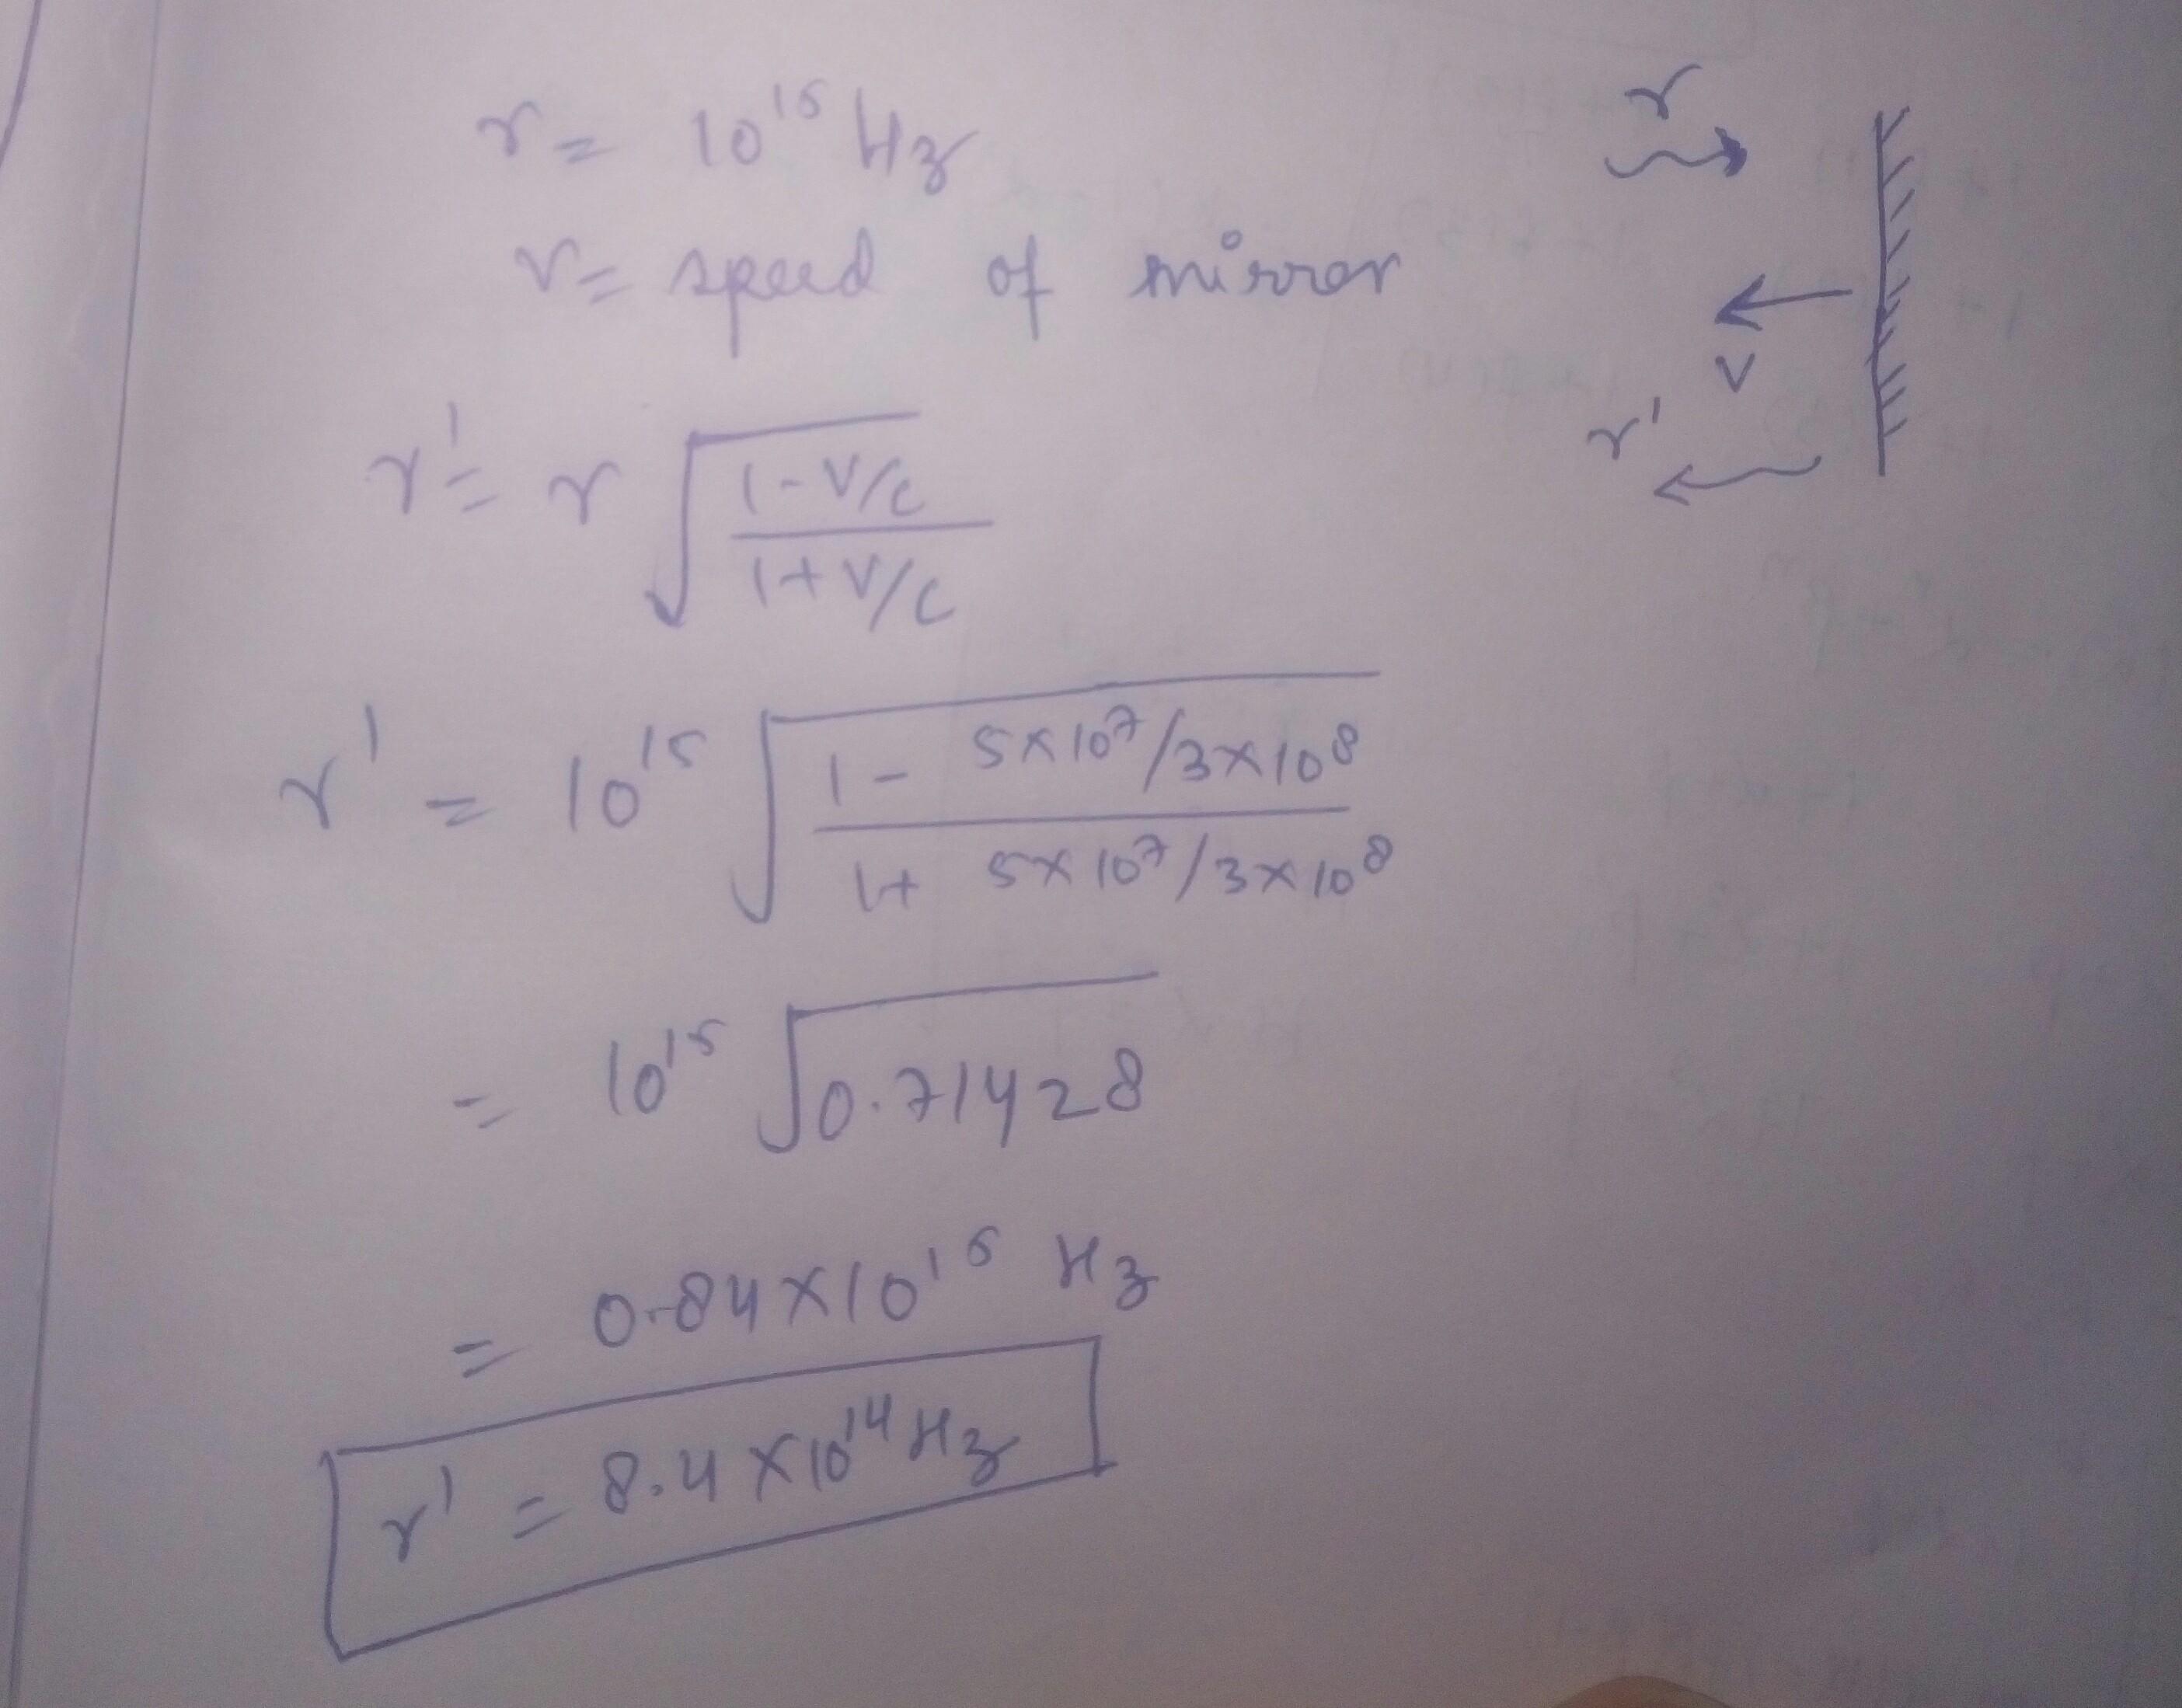 γ = 10¹⁵ Hz
v = speed of mirror
γ' = γ √((1-V/c)/(1+V/c))
γ' = 10¹⁵ √((1- 5×10⁷/3×10⁸)/(1+ 5×10⁷/3×10⁸))
= 10¹⁵ √0.71428
= 0.84×10¹⁵ Hz
γ' = 8.4×10¹⁴ Hz
γ
V
γ'